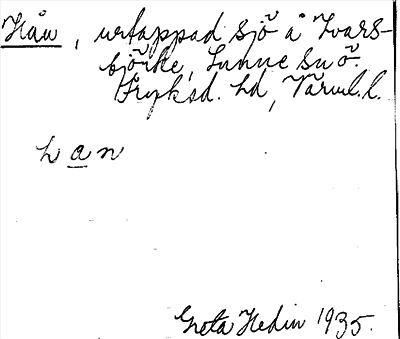 Hån, urtappad sjö å Ivars-
björke, Sunne sn ö.
Fryksd. hd, Värml. l.
h a n
Greta Hedin 1935.